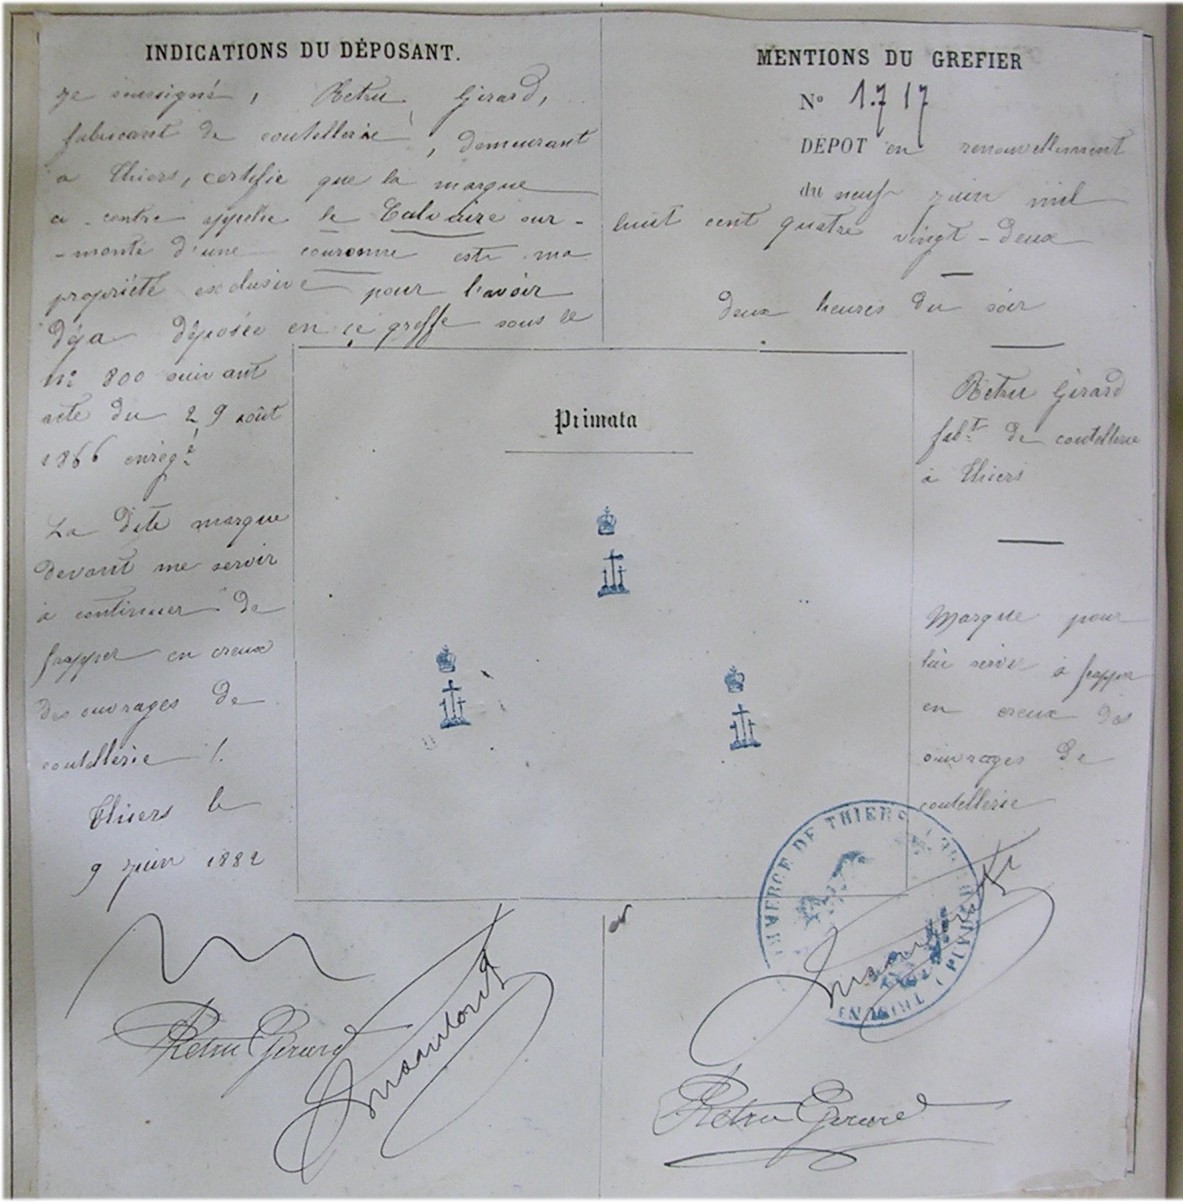 INDICATIONS DU DÉPOSANT.
je soussigné, Retru Girard,
fabricant de coutellerie, demeurant
a Thiers, certifie que la marque
ci-contre appelée le Calvaire sur-
-monté d'une couronne est ma
propriété exclusive pour l'avoir
déja déposée en ce greffe sous le
n° 800 suivant
acte du 29 août
1866 enregé.
La dite marque
devant me servir
à continuer de
frapper en creux
des ouvrages de
coutellerie /.
Thiers le
9 juin 1882
Retru Girard
MENTIONS DU GREFIER
N° 1.717
DÉPOT en renouvellement
du neuf juin mil
huit cent quatre vingt-deux
deux heures du soir
Retru Girard
fabt. de coutellerie
à Thiers
Marque pour
lui servir à frapper
en creux des
ouvrages de
coutellerie
Primata
MMERCE DE THIERS
PUY
Retru Girard